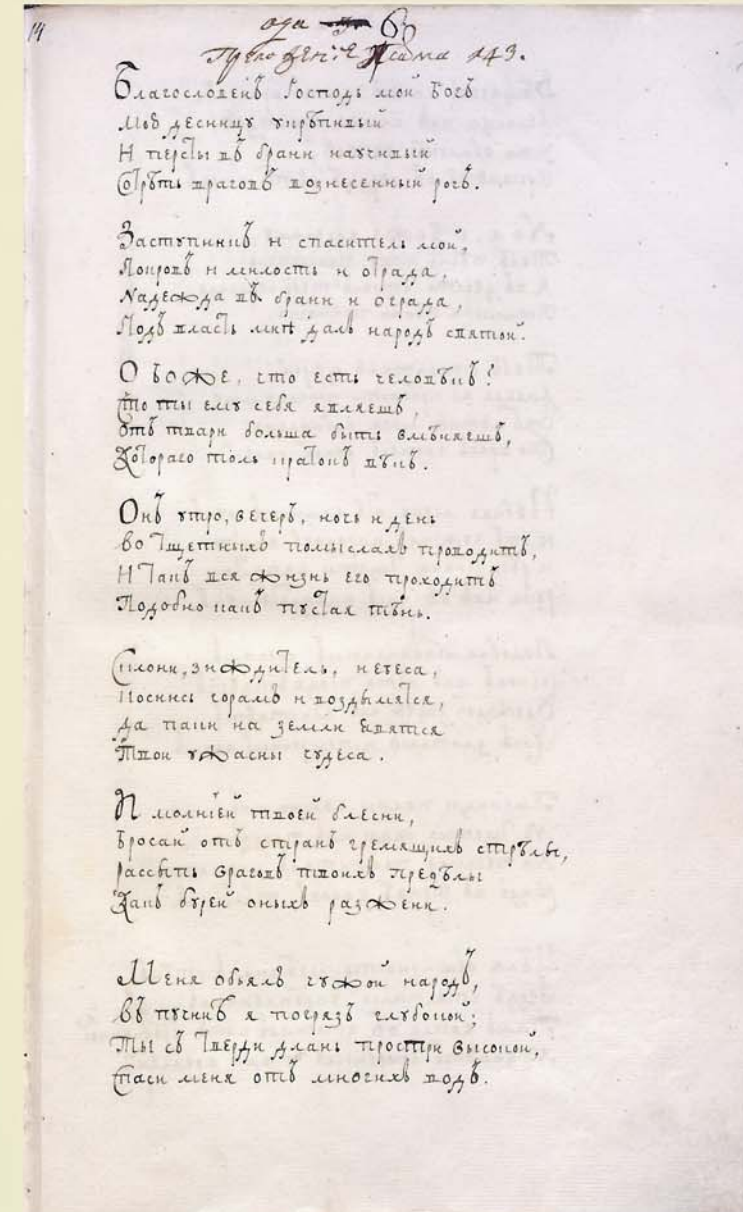 14
ода 6
Преложенїе Псалма 143.
Благословенъ Господь мой Богъ
Мою десницу укрѣпивый
И персты въ брани научивый
Сотрѣть враговъ вознесенный рогъ.
Заступникъ и спаситель мой,
Покровъ и милость и отрада,
Надежда въ брани и ограда,
Подъ власть мнѣ далъ народъ святой.
О Боже, что есть человѣкъ?
Что ты ему себя являешь,
Отъ твари больша быть вмѣняешь,
Котораго толь кратокъ вѣкъ.
Онъ утро, вечеръ, ночь и день
Во тщетныхъ помыслахъ проводитъ,
И такъ вся жизнь его проходитъ
Подобно какъ пустая тѣнь.
Склони, зиждитель, небеса,
Коснись горамъ и воздымятся,
Да паки на земли явятся
Твои ужасны чудеса.
И молнїей твоей блесни,
Бросай отъ странъ гремящихъ стрѣлы,
Рассыпь враговъ твоихъ предѣлы
Какъ бурей оныхъ разжени.
Меня объялъ чужой народъ,
Въ пучинѣ я погрязъ глубокой;
Ты съ тверди длань простри высокой,
Спаси меня отъ многихъ водъ.